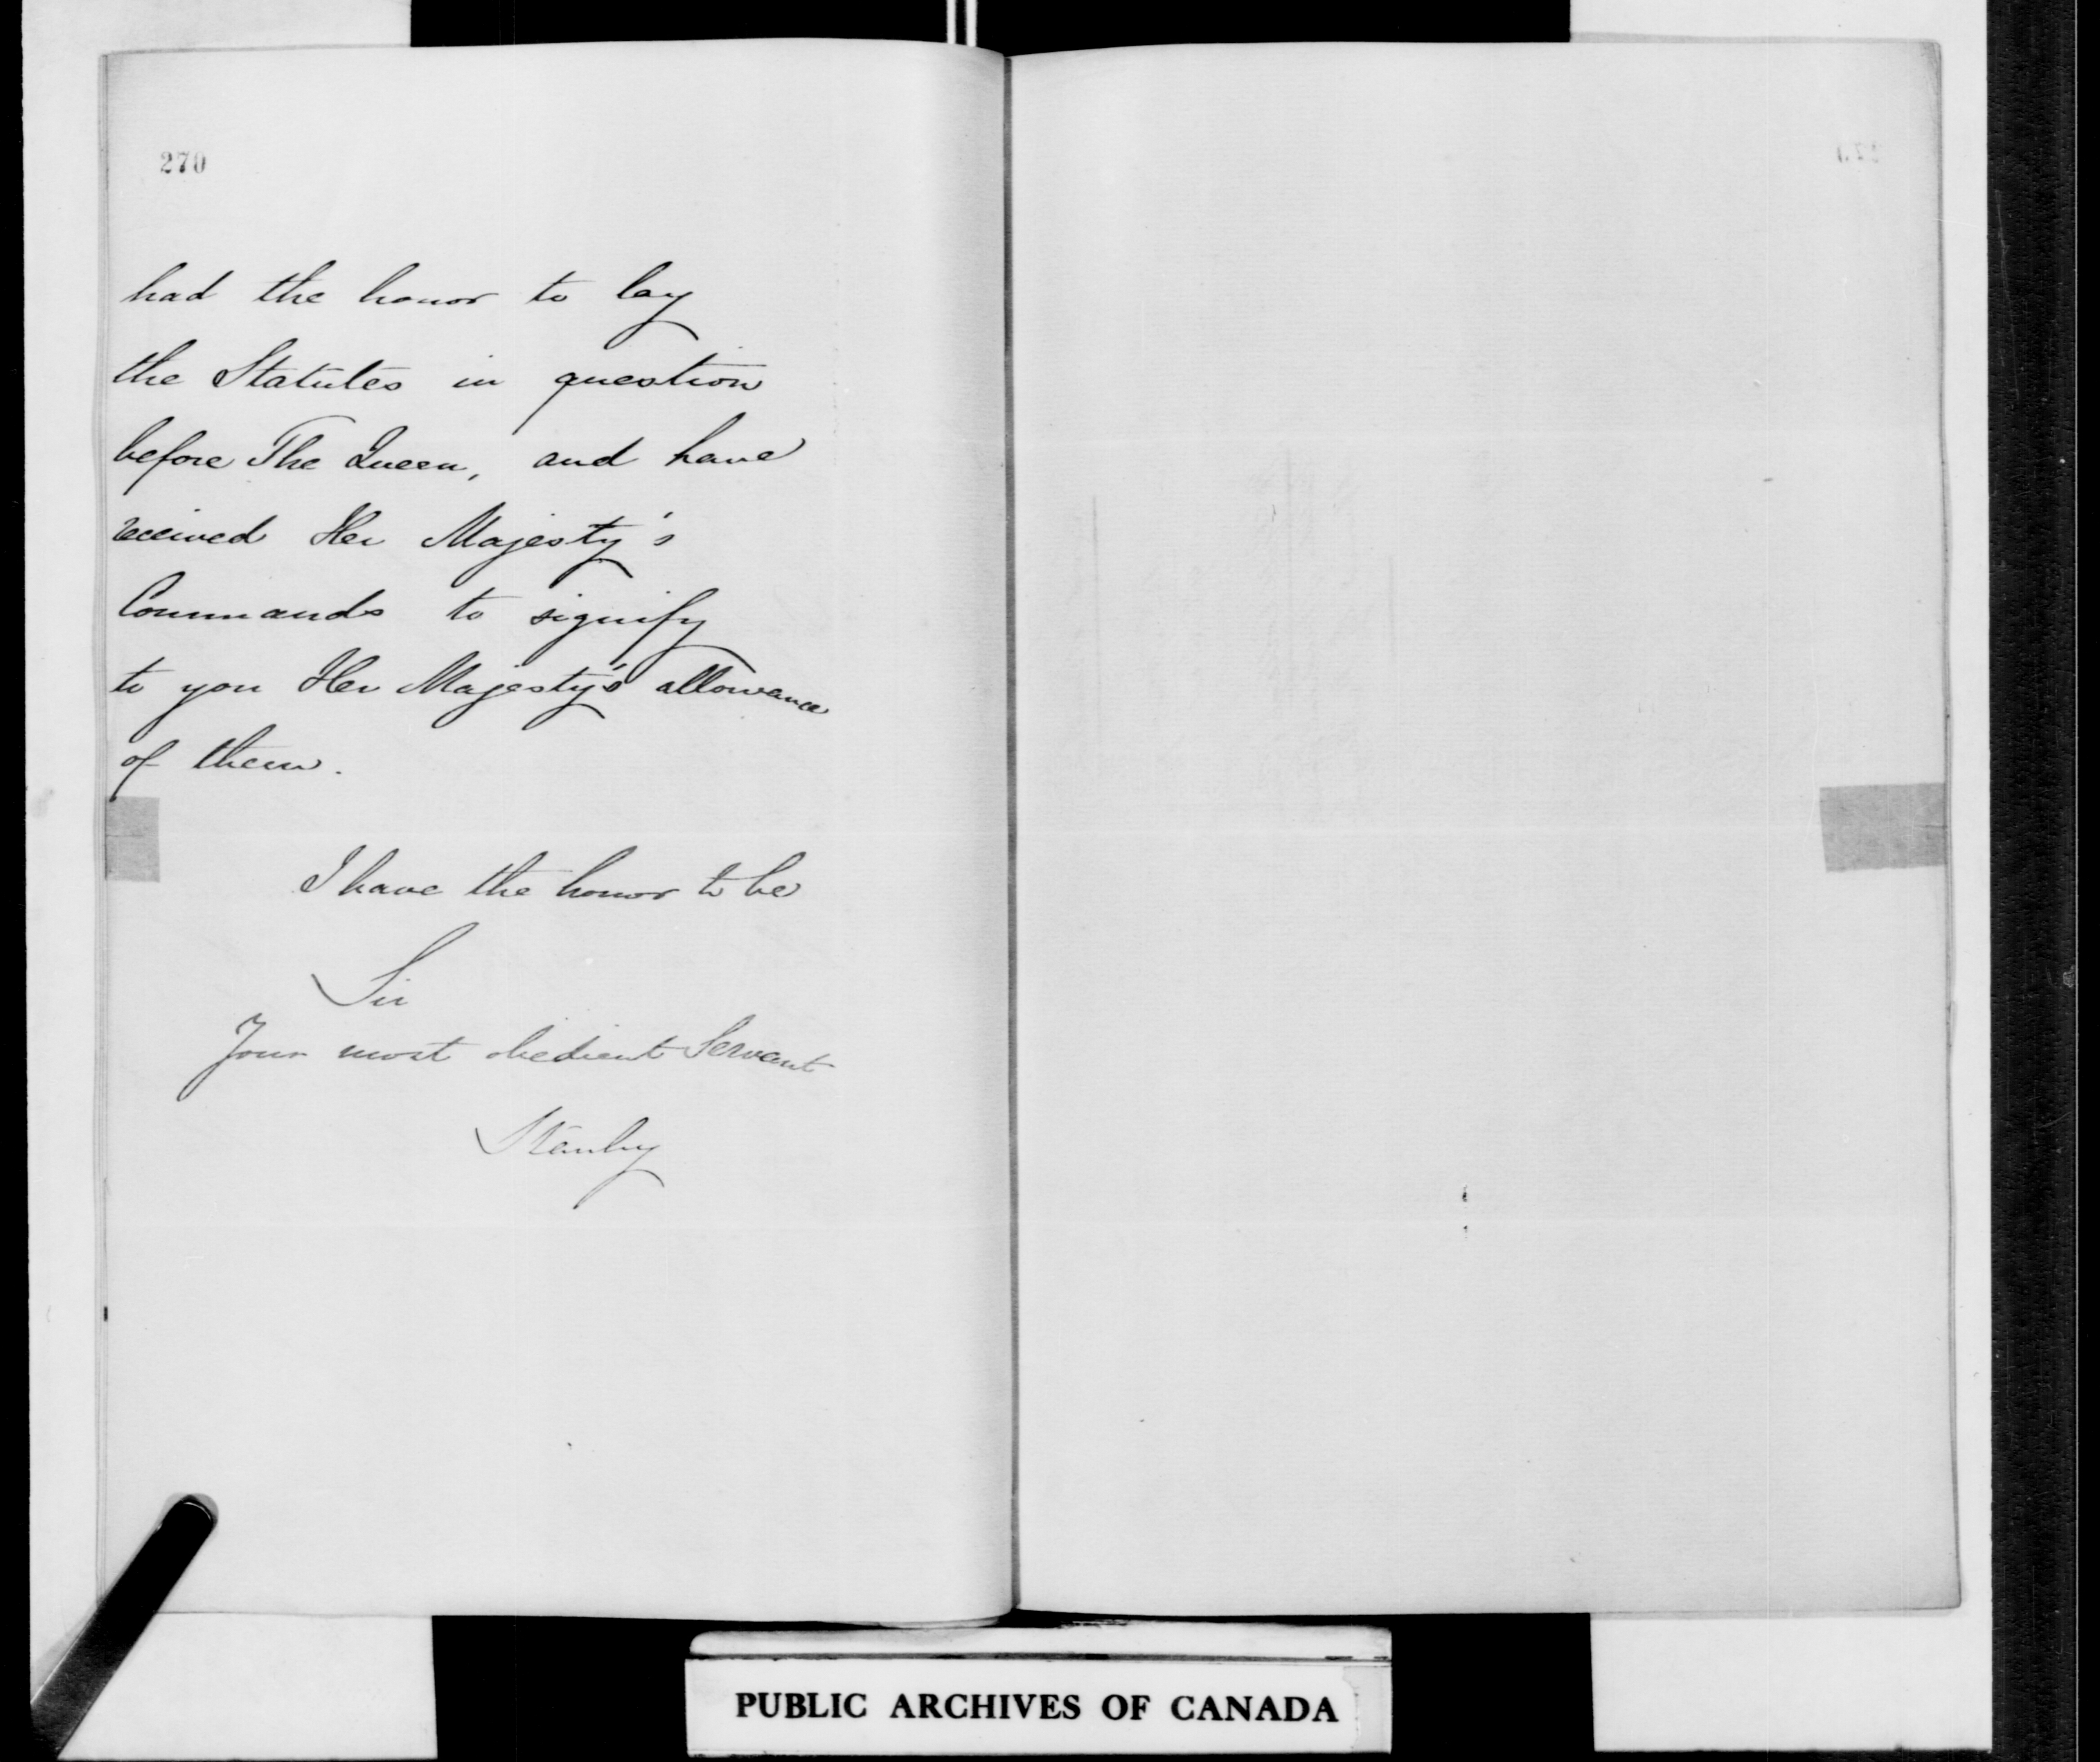 270
had the honor to lay
the Statutes in question
before The Queen, and have
received Her Majesty's
Commands to signify
to you Her Majesty's allowance
of them.
I have the honor to be
Sir
Your most obedient Servant
Stanley
PUBLIC ARCHIVES OF CANADA